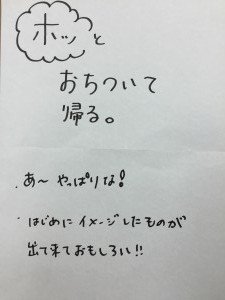 ホッと
おちついて
帰る。
. あ〜 やっぱりな!
・はじめに イメージしたものが
出て来ておもしろい!!